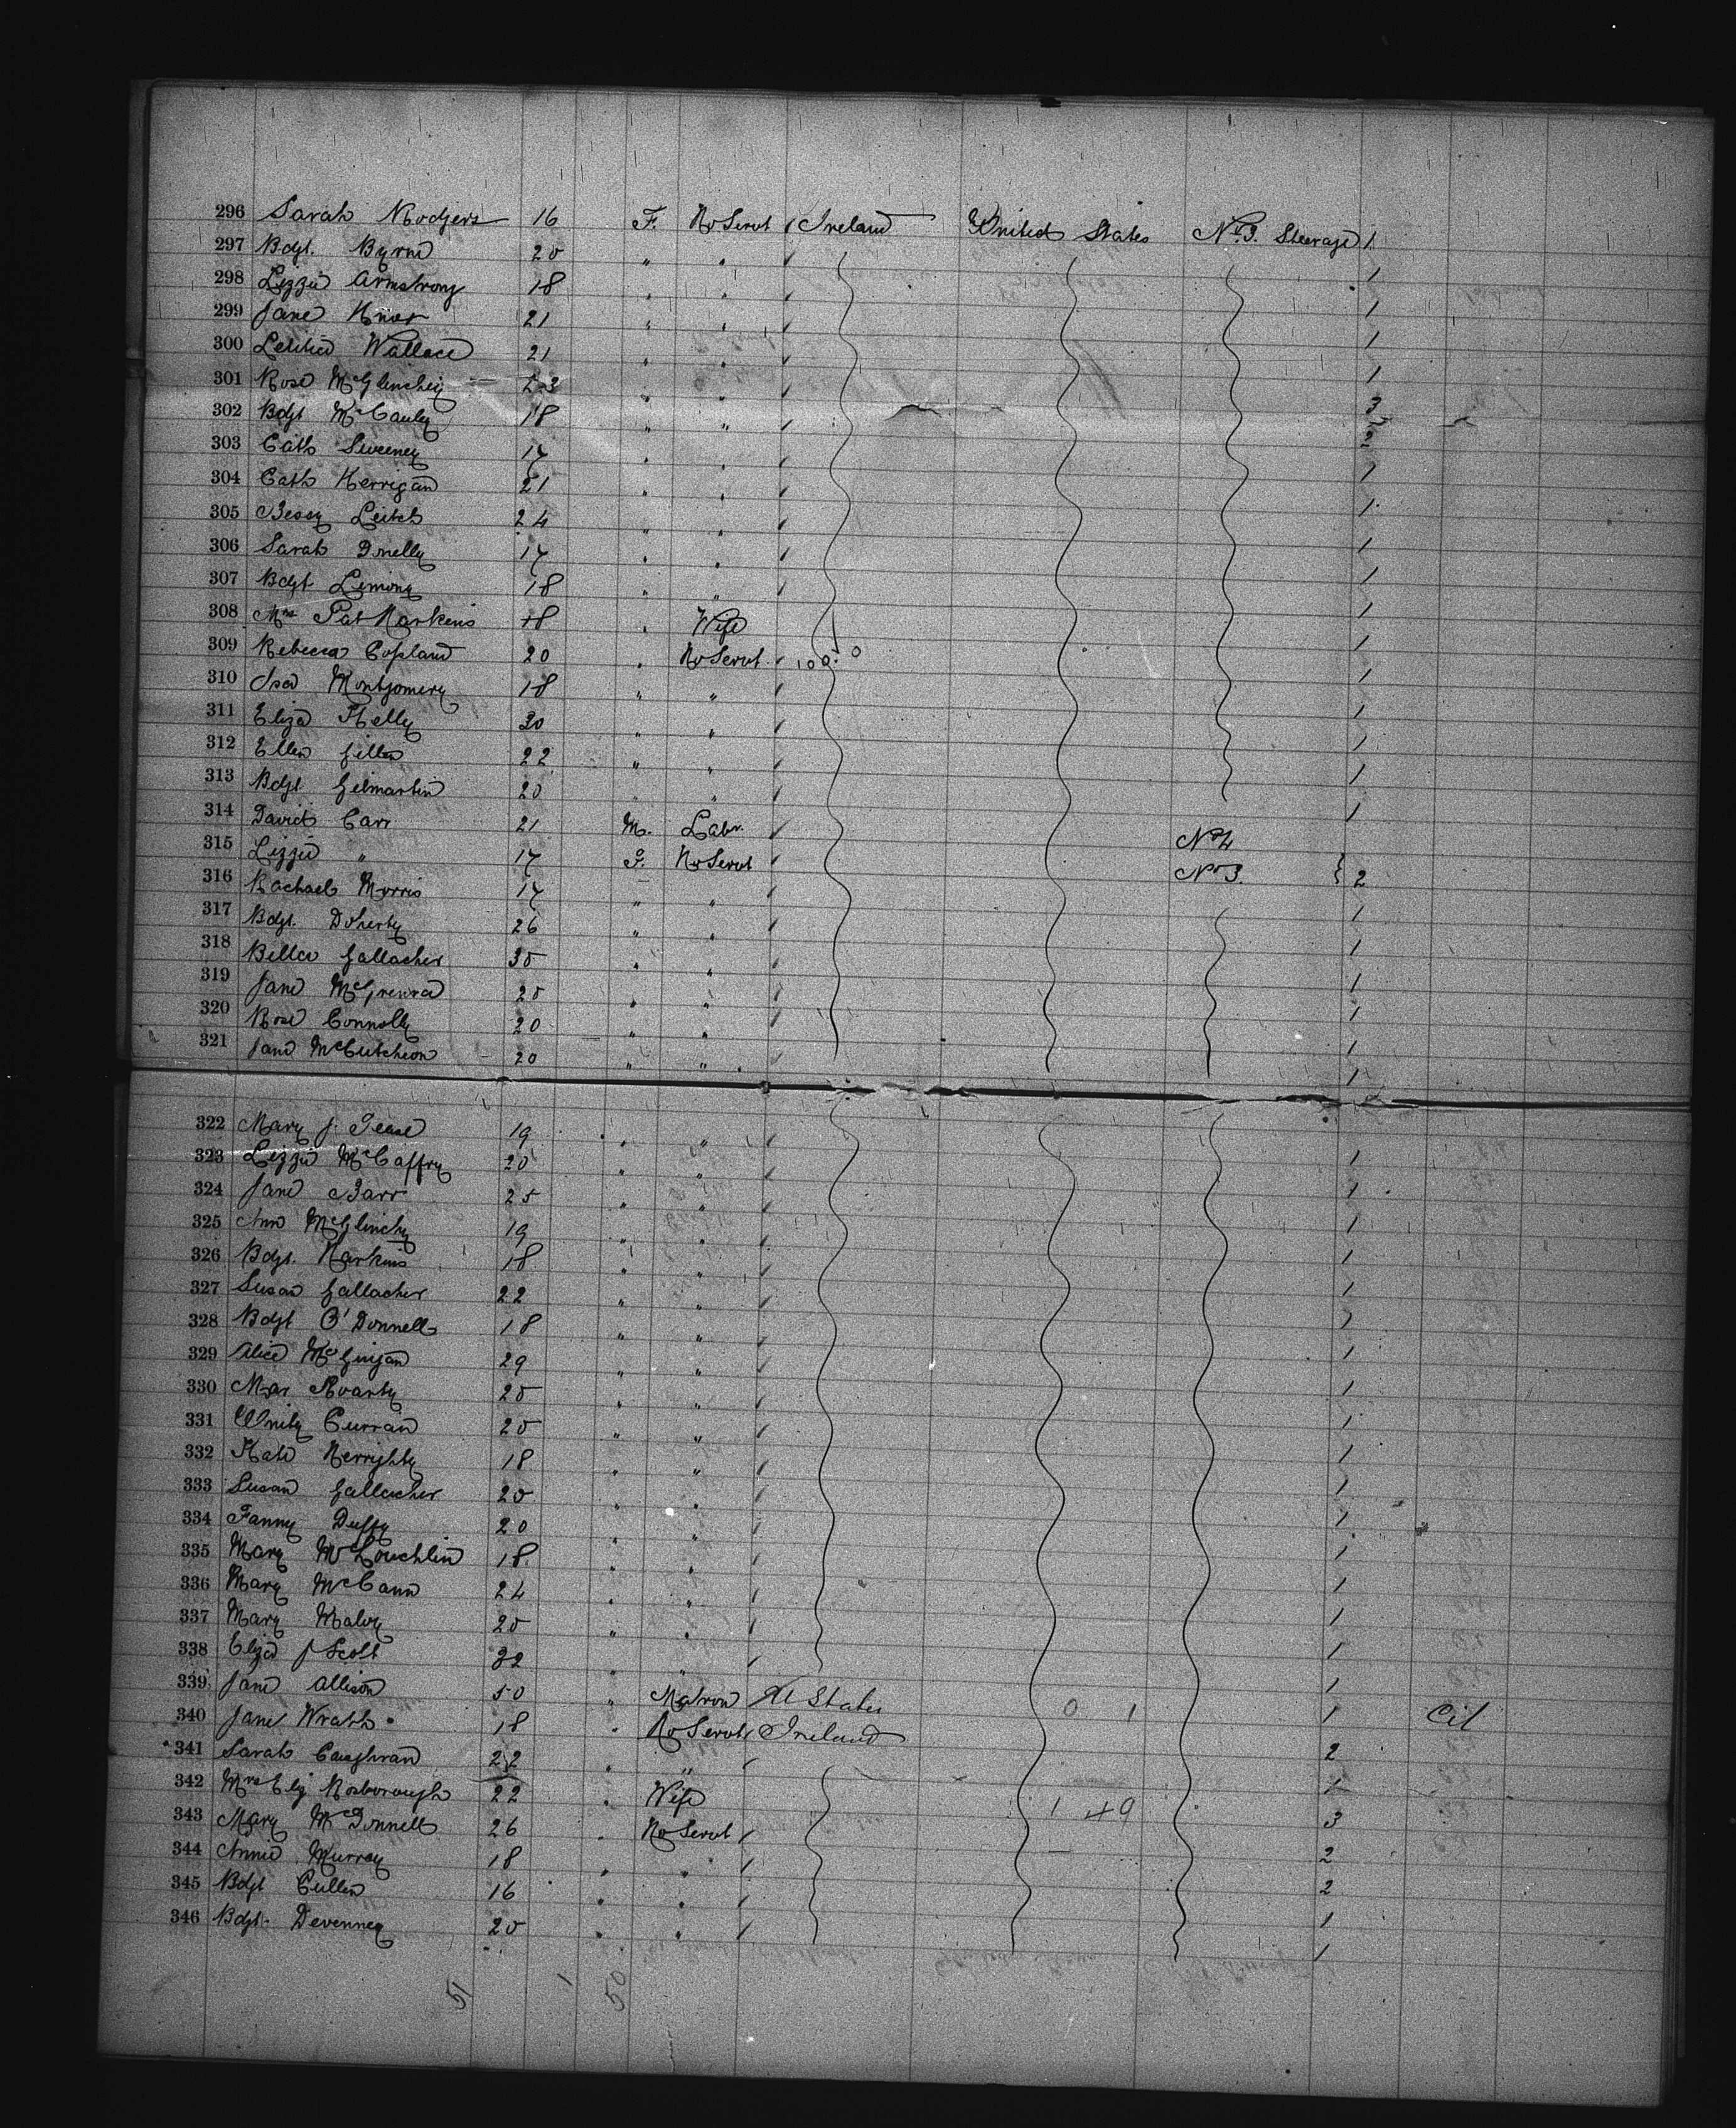 296 Sarah Rodgers 16 F. Ho Servt Ireland United States No 3. Steerage 1
297 Bdgt. Byrne 20 " " 1
298 Lizzie Armstrong 18 " " 1
299 Jane Knox 21 " " 1
300 Letitia Wallace 21 " " 1
301 Rose McGlinchey 23 " " 3
302 Bdgt McCauley 18 " " 2
303 Cath Sweeney 17 " " 1
304 Cath Kerrigan 21 " " 1
305 Bessy Leitch 24 " " 1
306 Sarah Dnelly 17 " " 1
307 Bdgt Limony 18 " " 1
308 Mrs Pat Harkins 18 " Wife 1
309 Rebecca Copland 20 " Ho Servt 1
310 Isa Montgomery 18 " " 1
311 Eliza Kelly 30 " " 1
312 Ellen Gillen 22 " " 1
313 Bdgt Gilmartin 20 " " 1
314 David Carr 21 M. Labr. No 4
315 Lizzie " 17 F. Ho Servt No 3. } 2
316 Rachael Morris 17 " " 1
317 Bdgt. Doherty 26 " " 1
318 Bella Gallacher 30 " " 1
319 Jane 20 " " 1
320 Rose Connolly 20 " " 1
321 Jane McCutcheon 20 " " 1
322 Mary J. Tease 19 " " 1
323 Lizzie McCaffry 20 " " 1
324 Jane Barr 25 " " 1
325 Ann McGlinchy 19 " " 1
326 Bdgt. Harkins 18 " " 1
327 Susan Gallacher 22 " " 1
328 Bdgt O'Donnell 18 " " 1
329 Alice McGuigan 29 " " 1
330 Mar Roarty 20 " " 1
331 Unity Curran 20 " " 1
332 Kate Herrighty 18 " " 1
333 Susan Gallacher 20 " " 1
334 Fanny Duffy 20 " " 1
335 Mary McLouchlin 18 " " 1
336 Mary McCann 24 " " 1
337 Mary Maloy 20 " " 1
338 Eliza J Scott 32 " " 1
339 Jane Allison 50 " Matron U States 0 1 1 Cit
340 Jane Wrath 18 " Ho Servt Ireland 2
341 Sarah Caughran 22 " " 1
342 Mrs Eliz Rosborough 22 " Wife 1 49 3
343 Mary McDonnell 26 " Ho Servt 2
344 Annie Murray 18 " " 2
345 Bdgt Cullen 16 " " 1
346 Bdgt. Devenney 20 " " 1
51 1 50